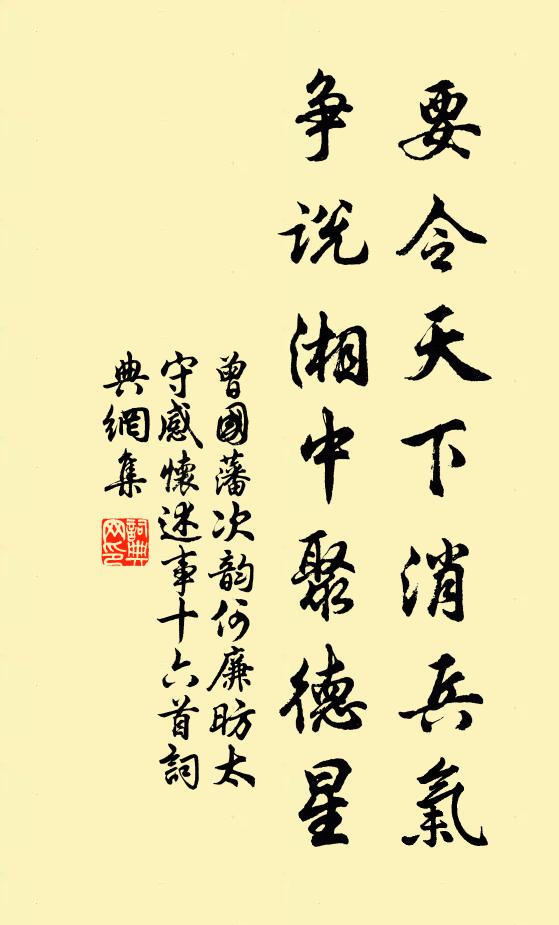 要令天下消兵氣
争说湘中聚德星
曾國藩次韵何廉昉太
守感懷述事十六首詞
典網集
詞典網印